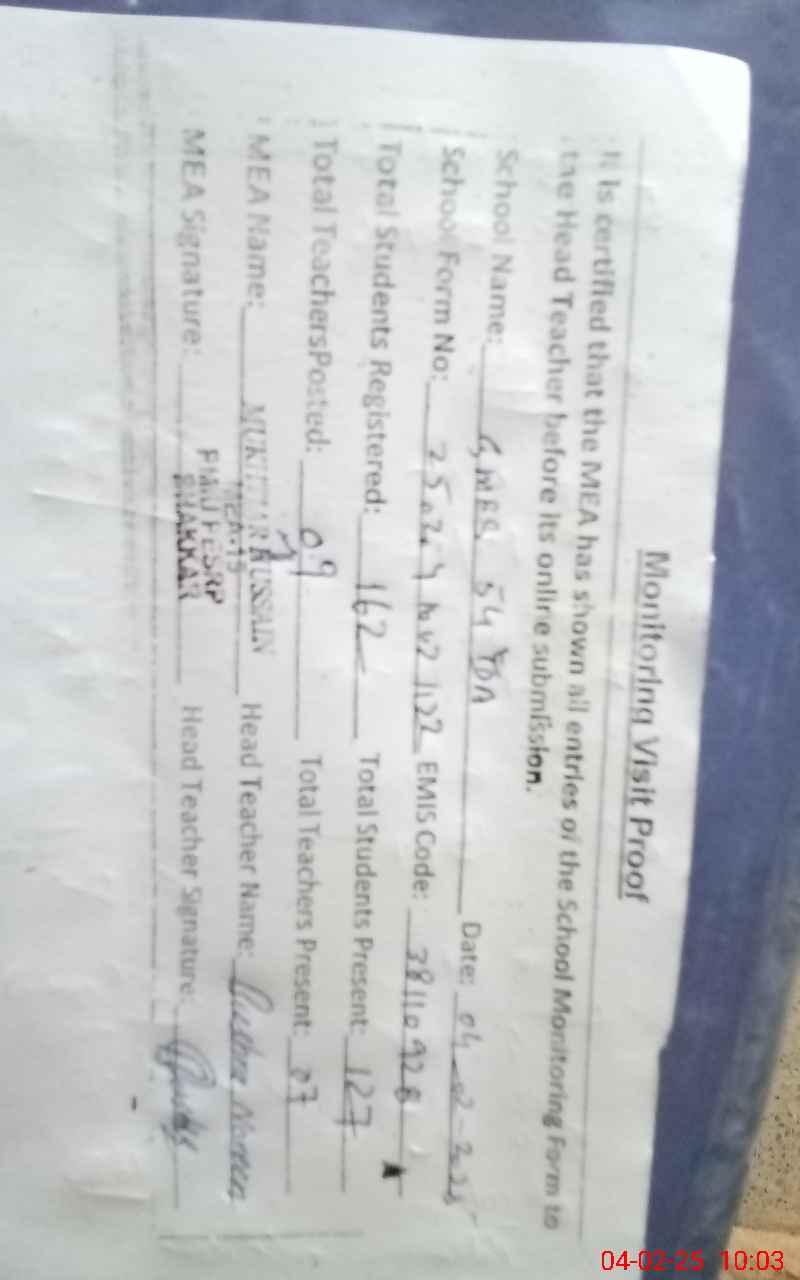 Monitoring Visit Proof
It is certified that the MEA has shown all entries of the School Monitoring Form to
the Head Teacher before its online submission.
School Name: 54 TDA Date: 04-02-2025
School Form No: EMIS Code: 38110928
Total Students Registered: 162 Total Students Present: 127
Total TeachersPosted: 09 Total Teachers Present: 07
MEA Name: MUKHTAR HUSSAIN Head Teacher Name:
MEA-15
MEA Signature: Head Teacher Signature:
PMIU PESRP
BHAKKAR
04-02-25 10:03